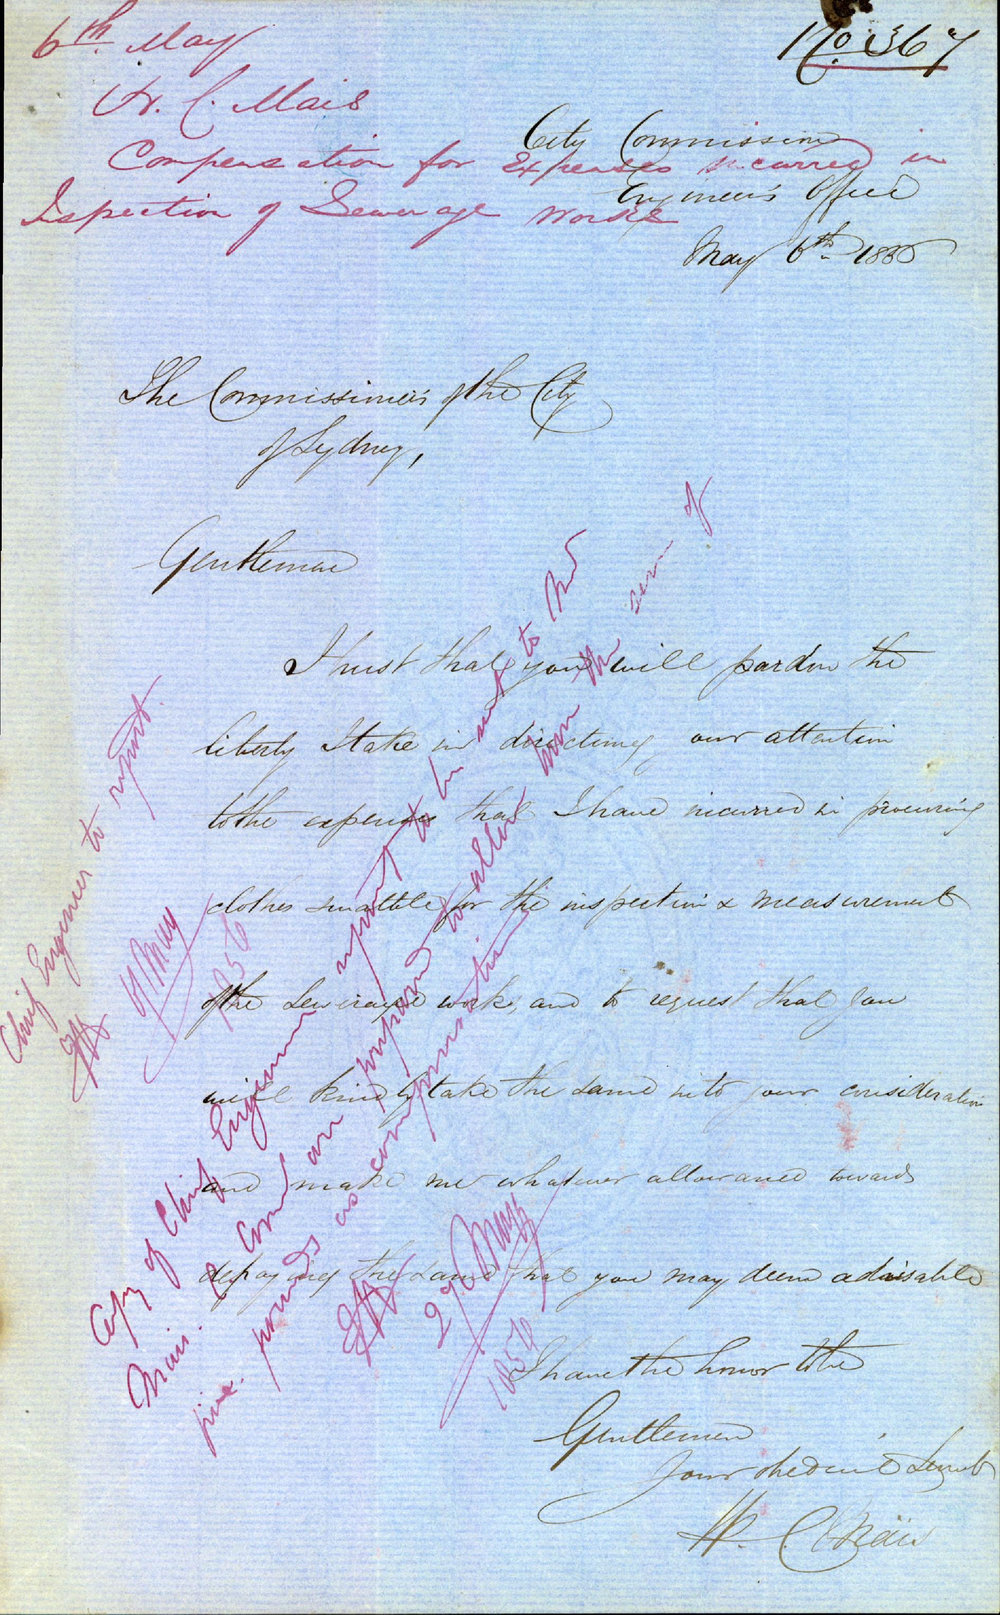 6th May
No. 367
H. C. Mais
Compensation for Expenses incurred in
Inspection of Sewerage Works
City Commission
Engineer's Office
May 6th 1856
The Commissioners of the City
of Sydney,
Gentlemen
I trust that you will pardon the
liberty I take in directing your attention
to the expenses that I have incurred in procuring
clothes suitable for the inspection & measurement
of the Sewerage works, and to request that you
will kindly take the same into your consideration
and make me whatever allowance towards
defraying the same that you may deem advisable
I have the honor to be
Gentlemen
Your obedient Servt
H. C. Mais
Chief Engineer to report.
9 May
1856
Copy of Chief Engineers report to be sent to Mr
Mais. & Comrs are prepared to allow him the sum of
five pounds as compensation
29 May
1856